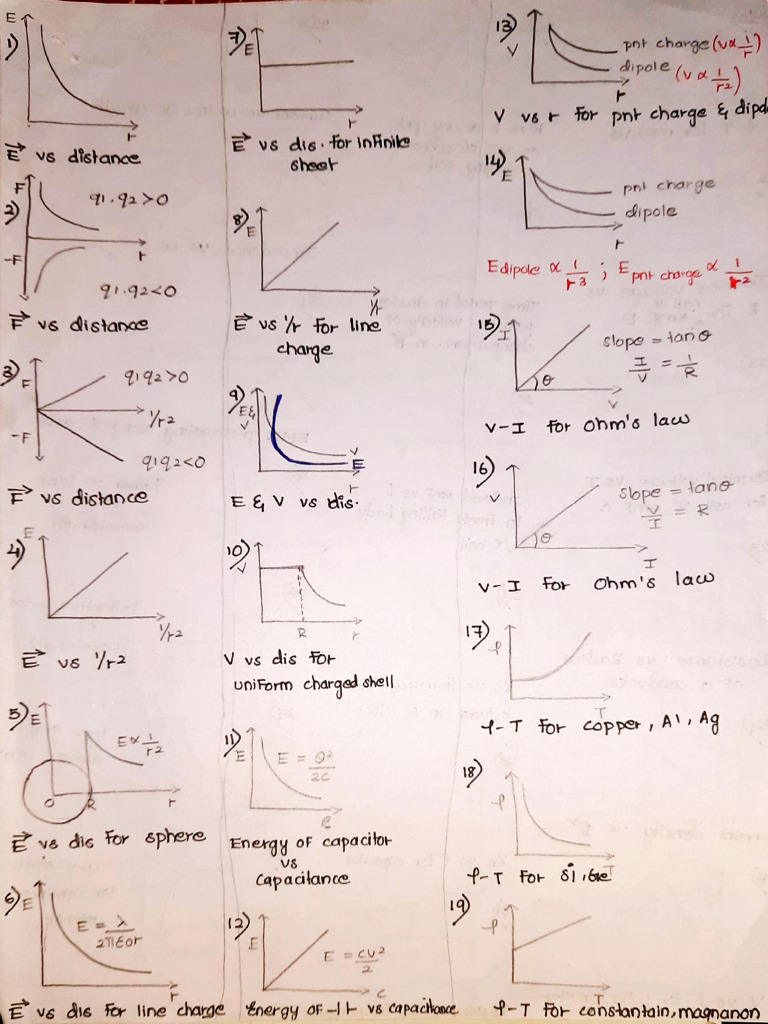 1) E
r
E vs distance
2) F
q1.q2>0
r
-F
q1.q2<0
F vs distance
3) F
q1q2>0
1/r2
-F
q1q2<0
F vs distance
4) E
1/r2
E vs 1/r2
5) E
E∝1/r2
O R r
E vs dis for sphere
6) E
E = λ/2πε0r
r
E vs dis for line charge
7) E
r
E vs dis. for infinite
sheet
8) E
1/r
E vs 1/r for line
charge
9) E&
V
V
E
r
E & V vs dis.
10) V
R r
V vs dis for
uniform charged shell
11) E
E = Q²/2C
C
Energy of capacitor
vs
capacitance
12) E
E = CV²/2
C
Energy of ⊣⊢ vs capacitance
13) V
pnt charge (V∝1/r)
dipole (V∝1/r2)
r
V vs r for pnt charge & dipo
14) E
pnt charge
dipole
r
Edipole ∝ 1/r3 ; Epnt charge ∝ 1/r2
15) I
slope = tanθ
I/V = 1/R
θ
V
V-I for Ohm's law
16) V
slope = tanθ
V/I = R
θ
I
V-I for Ohm's law
17) ρ
T
ρ-T for copper, Al, Ag
18) ρ
T
ρ-T for Si, Ge
19) ρ
T
ρ-T for constantain, magnanon